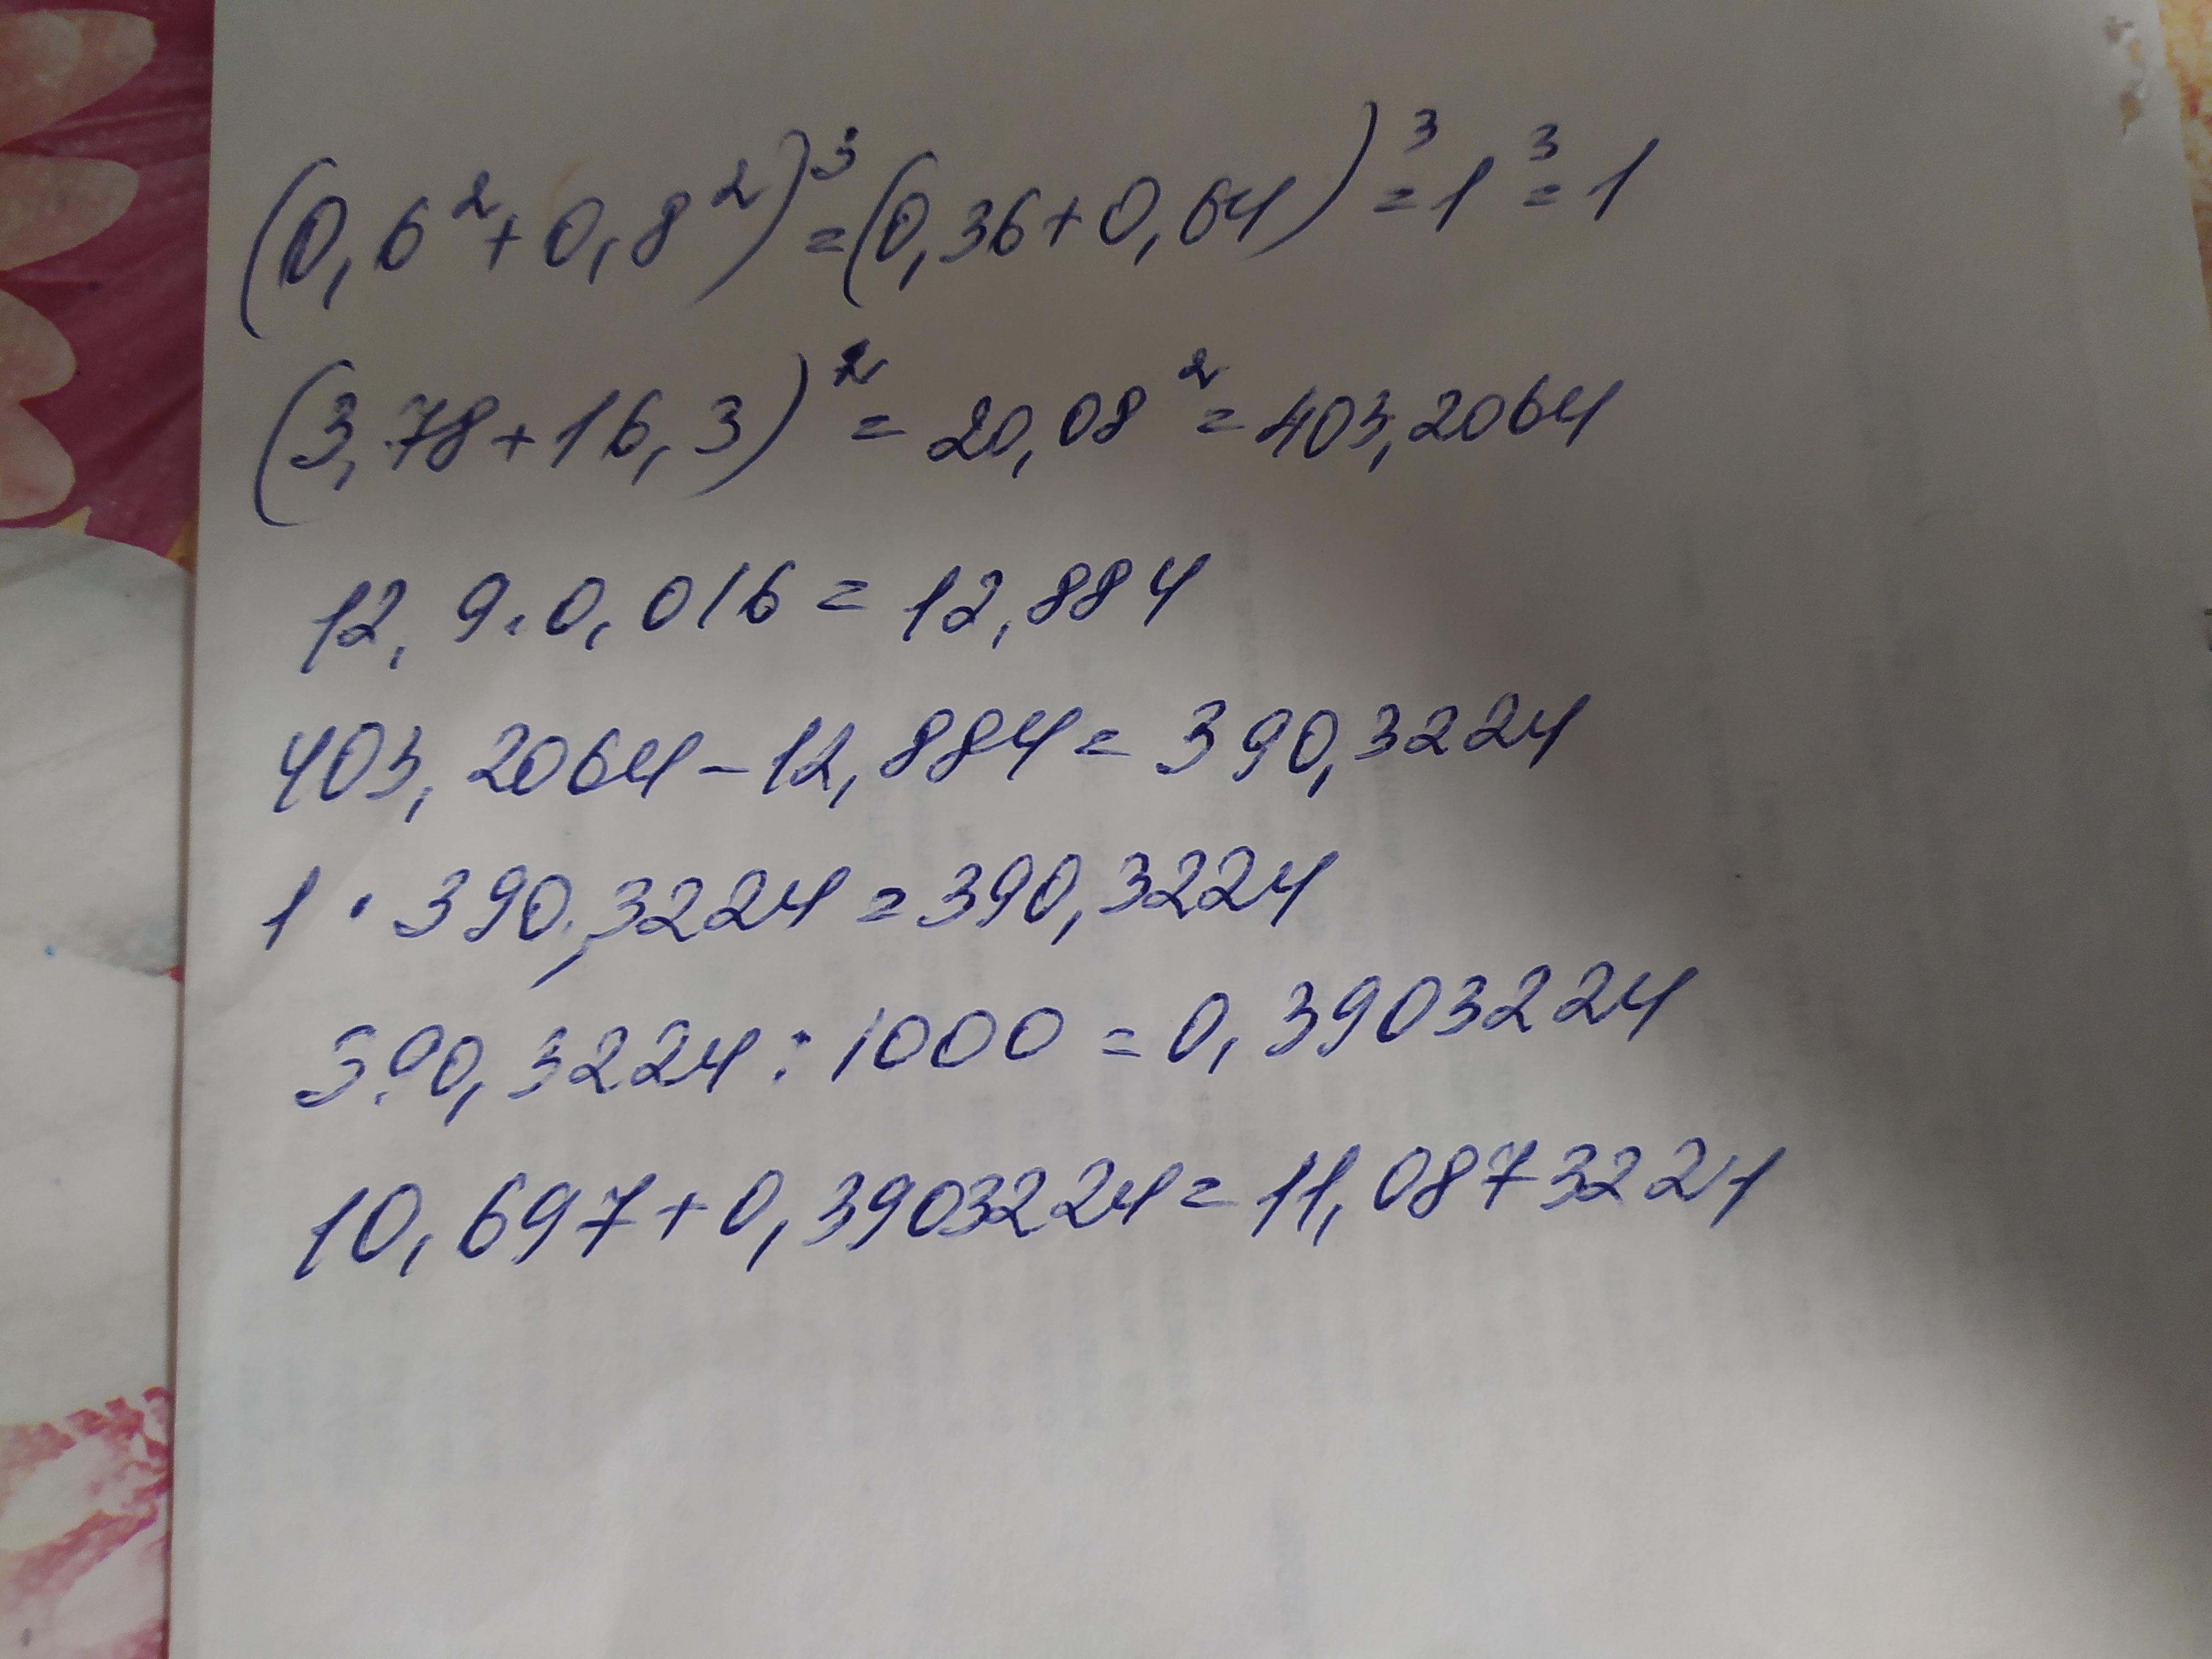 (0,6²+0,8²)³=(0,36+0,64)³=1³=1
(3,78+16,3)²=20,08²=403,2064
12,9·0,016=12,884
403,2064-12,884=390,3224
1·390,3224=390,3224
390,3224:1000=0,3903224
10,697+0,3903224=11,0873224